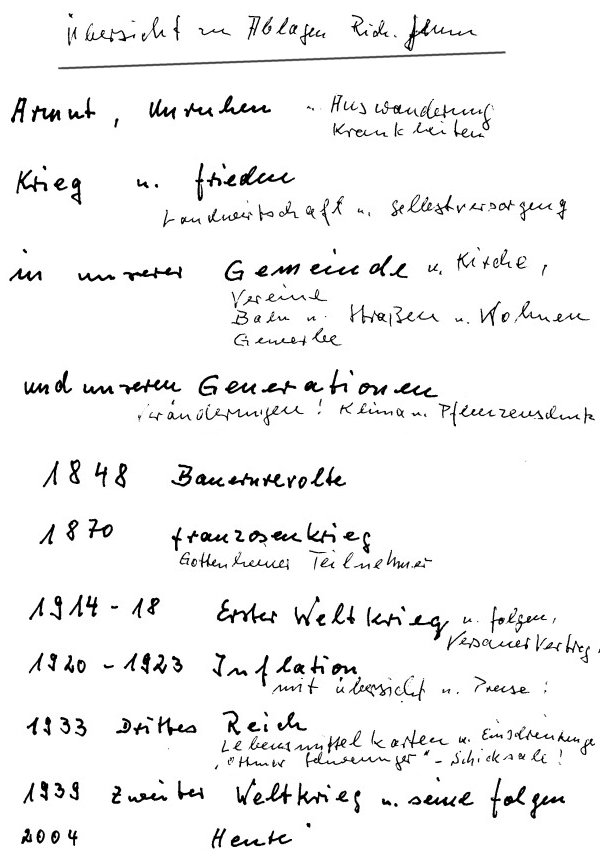 Übersicht zu Ablagen Rich.
Armut, Unruhen u. Auswanderung
Krankheiten
Krieg u. frieden
Landwirtschaft u. Selbstversorgung
in unserer Gemeinde u. Kirche,
Vereine
Bahn u. Straßen u. Wohnen
Gewerbe
und unseren Generationen
Veränderungen! Klima u. Pflanzenschutz
1848 Bauernrevolte
1870 franzosenkrieg
Gottenheimer Teilnehmer
1914-18 Erster Weltkrieg u. folgen,
Vertrag,
1920-1923 Inflation
mit Übersicht u. Preise:
1933 Drittes Reich
Lebensmittelkarten u. Einschränkunge
- Schicksale!
1939 Zweiter Weltkrieg u. seine folgen
2004 Heute